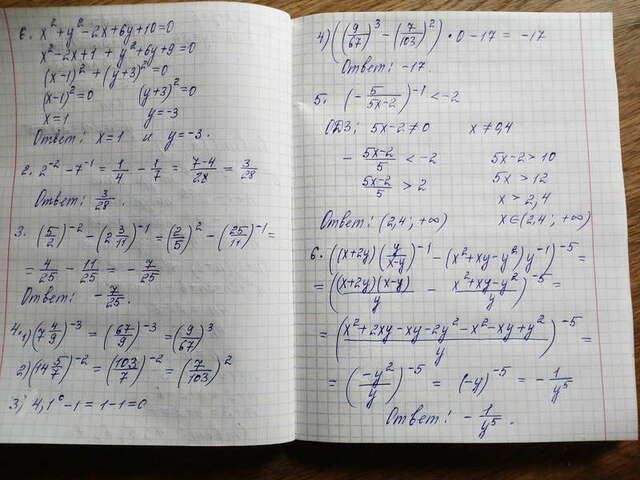 6. x² + y² - 2x + 6y + 10 = 0
x² - 2x + 1 + y² + 6y + 9 = 0
(x-1)² + (y+3)² = 0
(x-1)² = 0 (y+3)² = 0
x = 1 y = -3
Ответ: x = 1 и y = -3.
2. 2⁻² - 7⁻¹ = 1/4 - 1/7 = (7-4)/28 = 3/28
Ответ: 3/28.
3. (5/2)⁻² - (2 3/11)⁻¹ = (2/5)² - (25/11)⁻¹ =
= 4/25 - 11/25 = - 7/25
Ответ: - 7/25.
4. 1) (7 4/9)⁻³ = (67/9)⁻³ = (9/67)³
2) (14 5/7)⁻² = (103/7)⁻² = (7/103)²
3) 4,1⁰ - 1 = 1 - 1 = 0
4) ((9/67)³ - (7/103)²) · 0 - 17 = -17
Ответ: -17.
5. (- 5/(5x-2))⁻¹ < -2
ОДЗ: 5x - 2 ≠ 0 x ≠ 0,4
- (5x-2)/5 < -2 5x - 2 > 10
(5x-2)/5 > 2 5x > 12
x > 2,4
Ответ: (2,4; +∞) x∈(2,4; +∞)
6. ((x+2y)(y/(x-y))⁻¹ - (x² + xy - y²) y⁻¹)⁻⁵ =
= ((x+2y)(x-y)/y - (x² + xy - y²)/y)⁻⁵ =
= ((x² + 2xy - xy - 2y² - x² - xy + y²)/y)⁻⁵ =
= (-y²/y)⁻⁵ = (-y)⁻⁵ = - 1/y⁵
Ответ: - 1/y⁵.